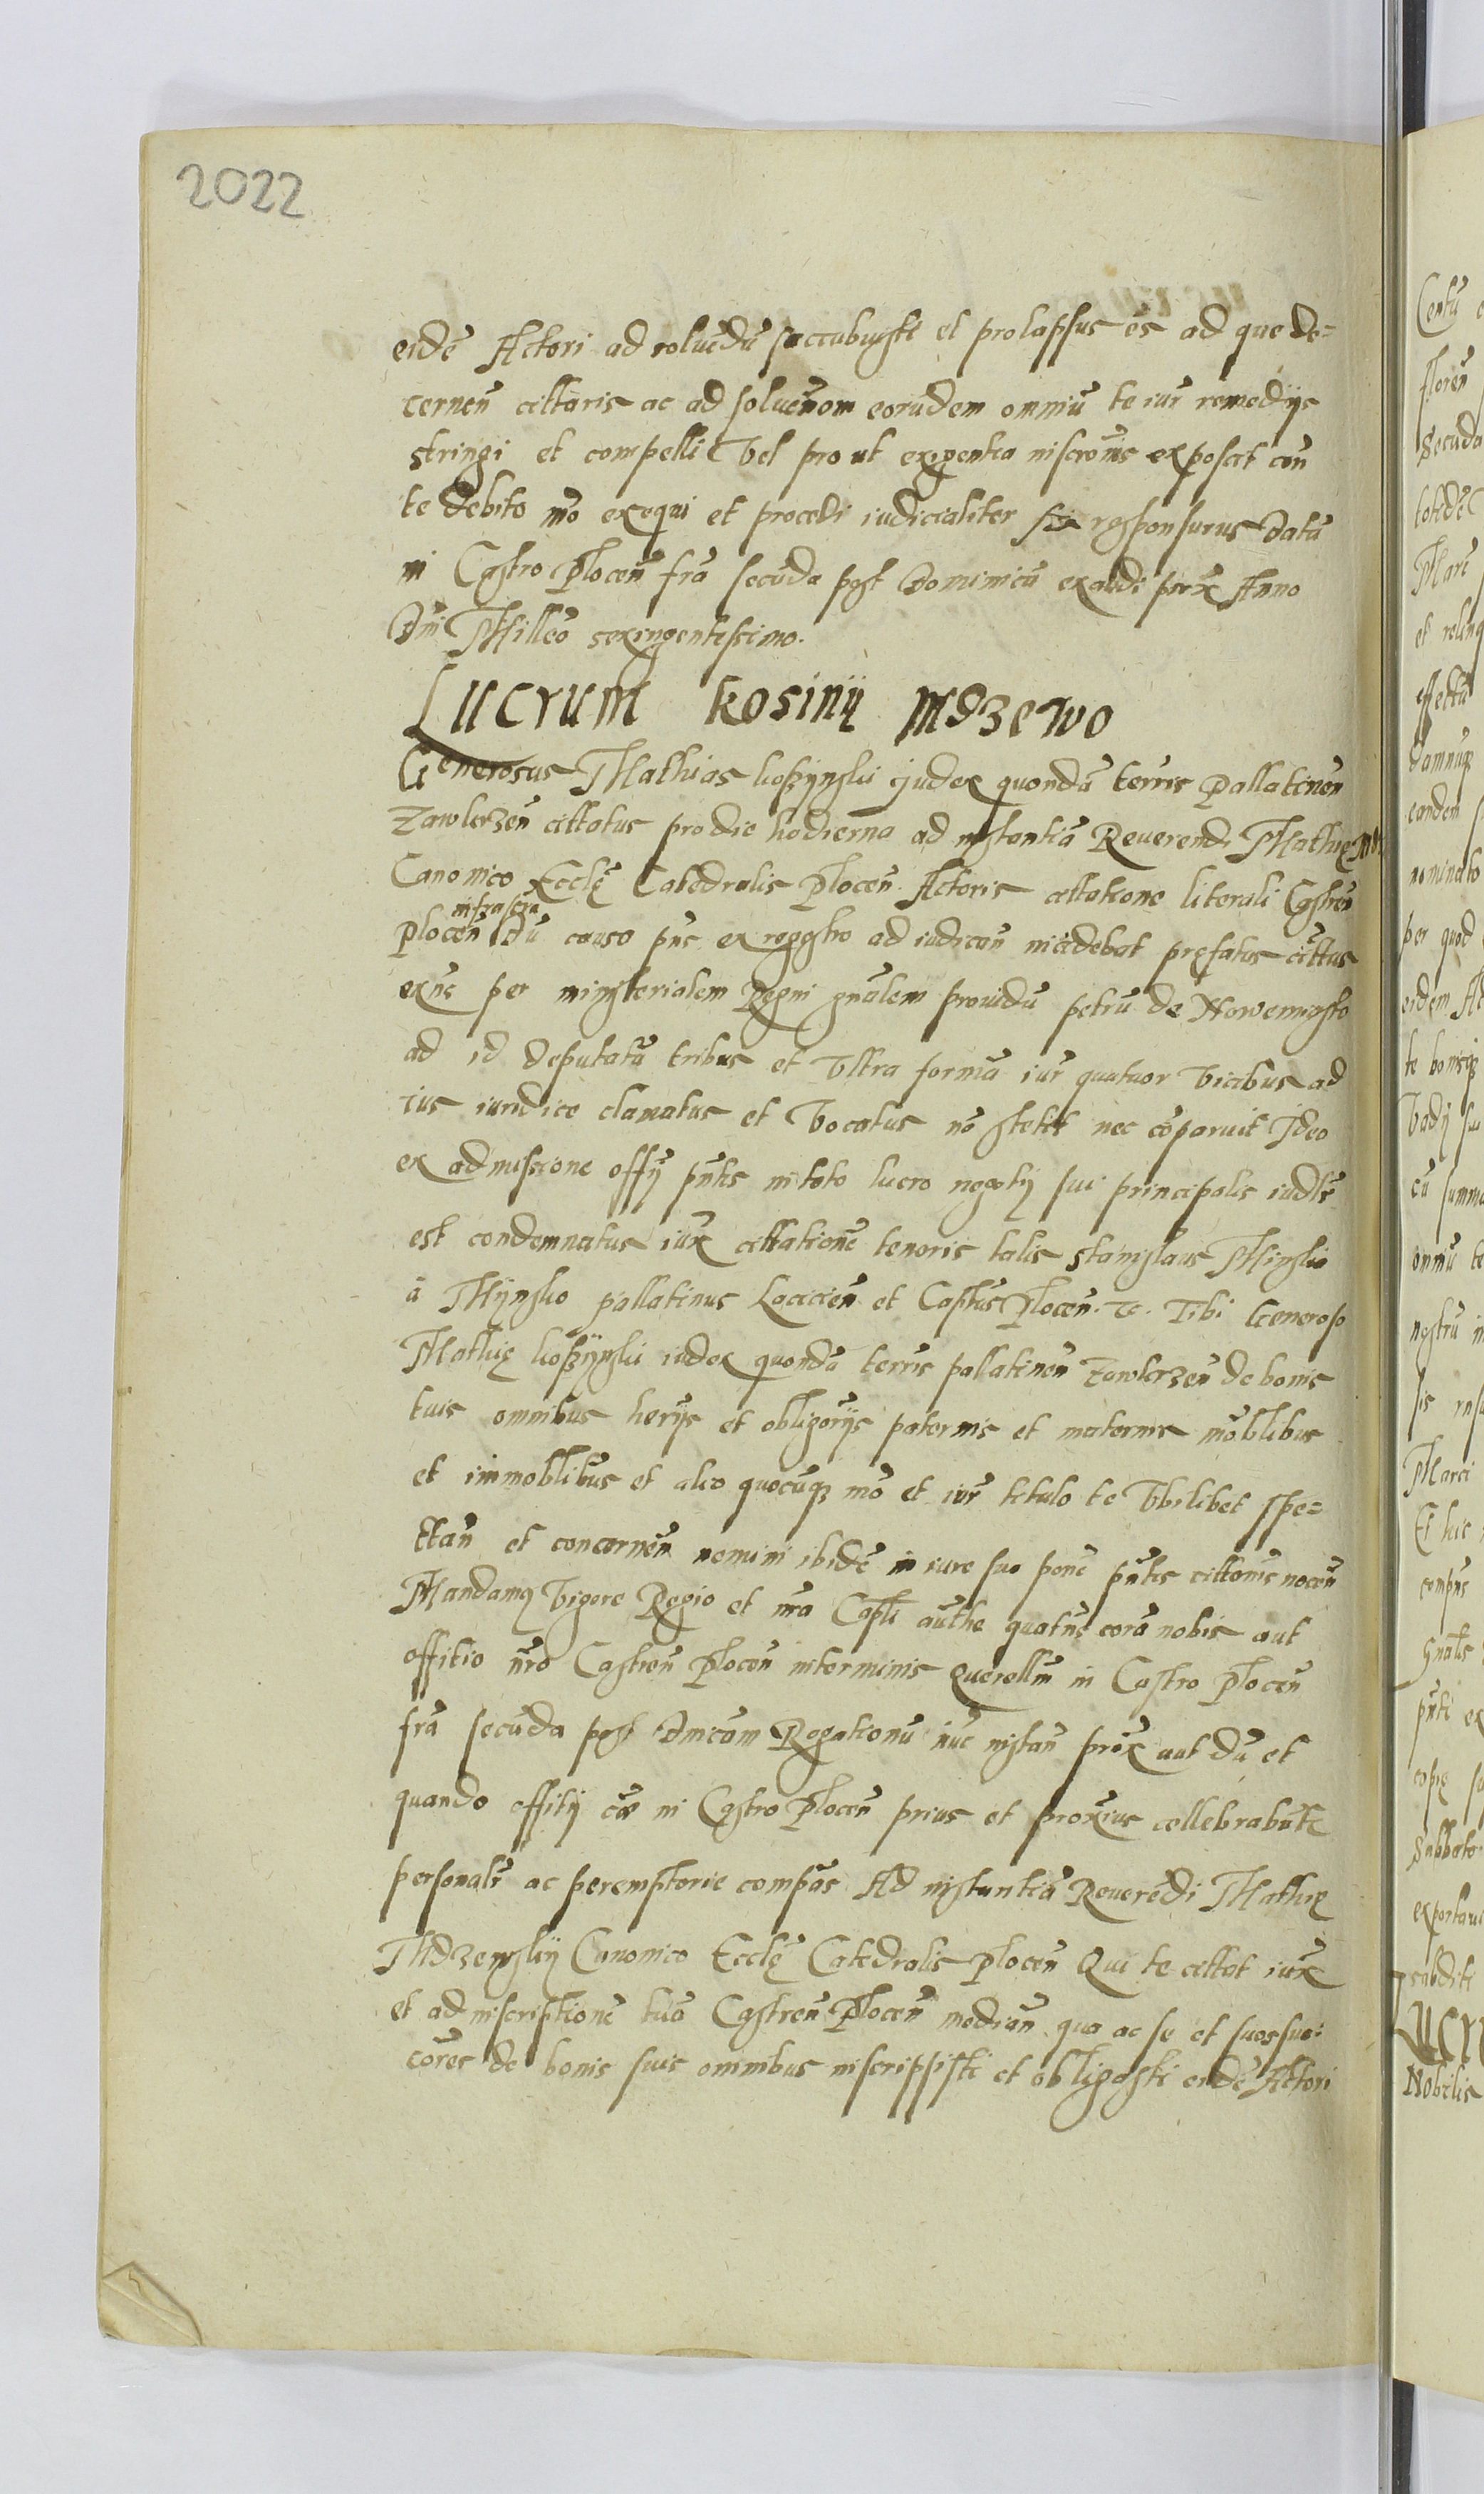 2022
eidē Actori ad solvēdū succubuisti et prolapsus es ad que de=
cernen̄ cittaris ac ad solven̄dom eorūdem omniū te iur̄ remedijs
stringi et compelli Vel pro ut exigentia inscr̄onis exposcit con̄
te debito mō exequi et procedi iudicialiter sis responsurus Datū
in Castro Plocen̄ fr̄a secūda post Dominicū exaudi prox̄ Anno
Dn̄i Milleō sexingentissimo.
Lucrum kosinij Mdzewo
Generosus Mathias koszynski iudex quondā terris Pallatinen̄
Zawkrzen̄ cittatus pro die hodierna ad instantiā Reverendi Mathię
Canonico Ecclę̄ Catedralis Plocen̄ Actoris cittatione literali Castren̄
infrascra
Plocen̄ Dū causa pn̄s ex regestro ad iudican̄ incidebat prefatus cit̄tus
exn̄s per ministerialem Regni gn̄alem providū petrū de Nowemiasto
ad id deputatū tribus et Ultra formā iur̄ quatuor Vicibus ad
ius iuridice clamatus et Vocatus nō stetit nec cōparuit Ideo
ex admissione offy pn̄tis in toto lucro negotij sui principalis iudlr̄
est condemnatus iux̄ cittationē tenoris talis Stanislaus Minsko
a Mynsko pallatinus Lacicien̄ et Captūs Plocen̄. &c. Tibi Generoso
Mathię koszynski iudex quondā terris pallatinen̄ Zawkrzen̄ de bonis
tuis omnibus herijs et obligorijs paternis et maternis mōblibus
et immoblibus et alio quocūq; mō et iur̄ titulo te Vbilibet spe=
ctan̄ et concernen̄ nemini ibidē in iure suo penē pn̄tis cittonis nocen̄
Mandamꝰ Vigore Regio et nr̄a Capli auth̄e quatn̄s corā nobis aut
offitio nr̄o Castren̄ Plocen̄ in terminis Querellm̄ in Castro Plocen̄
fr̄a secūda post Dn̄icam Rogationū nūc instan̄ prox̄ aut dū et
quando offitij cāe in Castro Plocen̄ prius et prox̄ius cellebrabūt
personalr̄ ac peremptorie compās Ad instantiā Reverēdi Mathię
Mdzewskij Canonico Ecclę̄ Catedralis Plocen̄ Qui te cittat iux̄
et ad inscriptionē tuā Castren̄ Plocen̄ median̄ qua ac se et suos suc:
cōres de bonis suis omnibus inscripsisti et obligasti eidē Actori